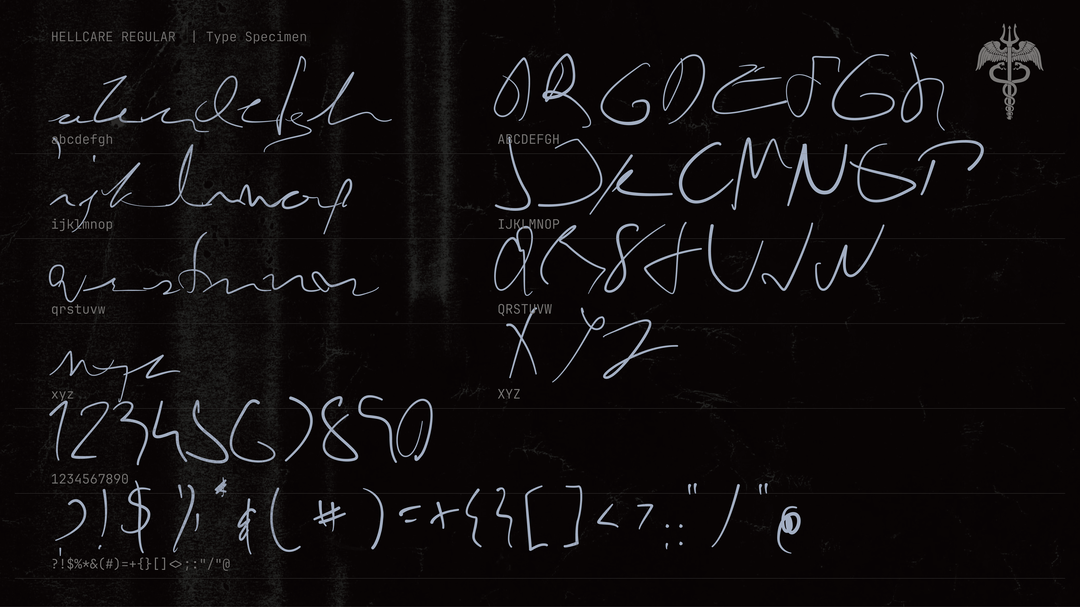 HELLCARE REGULAR | Type Specimen
abcdefgh
abcdefgh
ABCDEFGH
ABCDEFGH
ijklmnop
ijklmnop
IJKLMNOP
IJKLMNOP
qrstuvw
qrstuvw
QRSTUVW
QRSTUVW
xyz
xyz
XYZ
XYZ
1234567890
1234567890
?!$%*&(#)=+{}[]<>;:"/"@
?!$%*&(#)=+{}[]<>;:"/"@